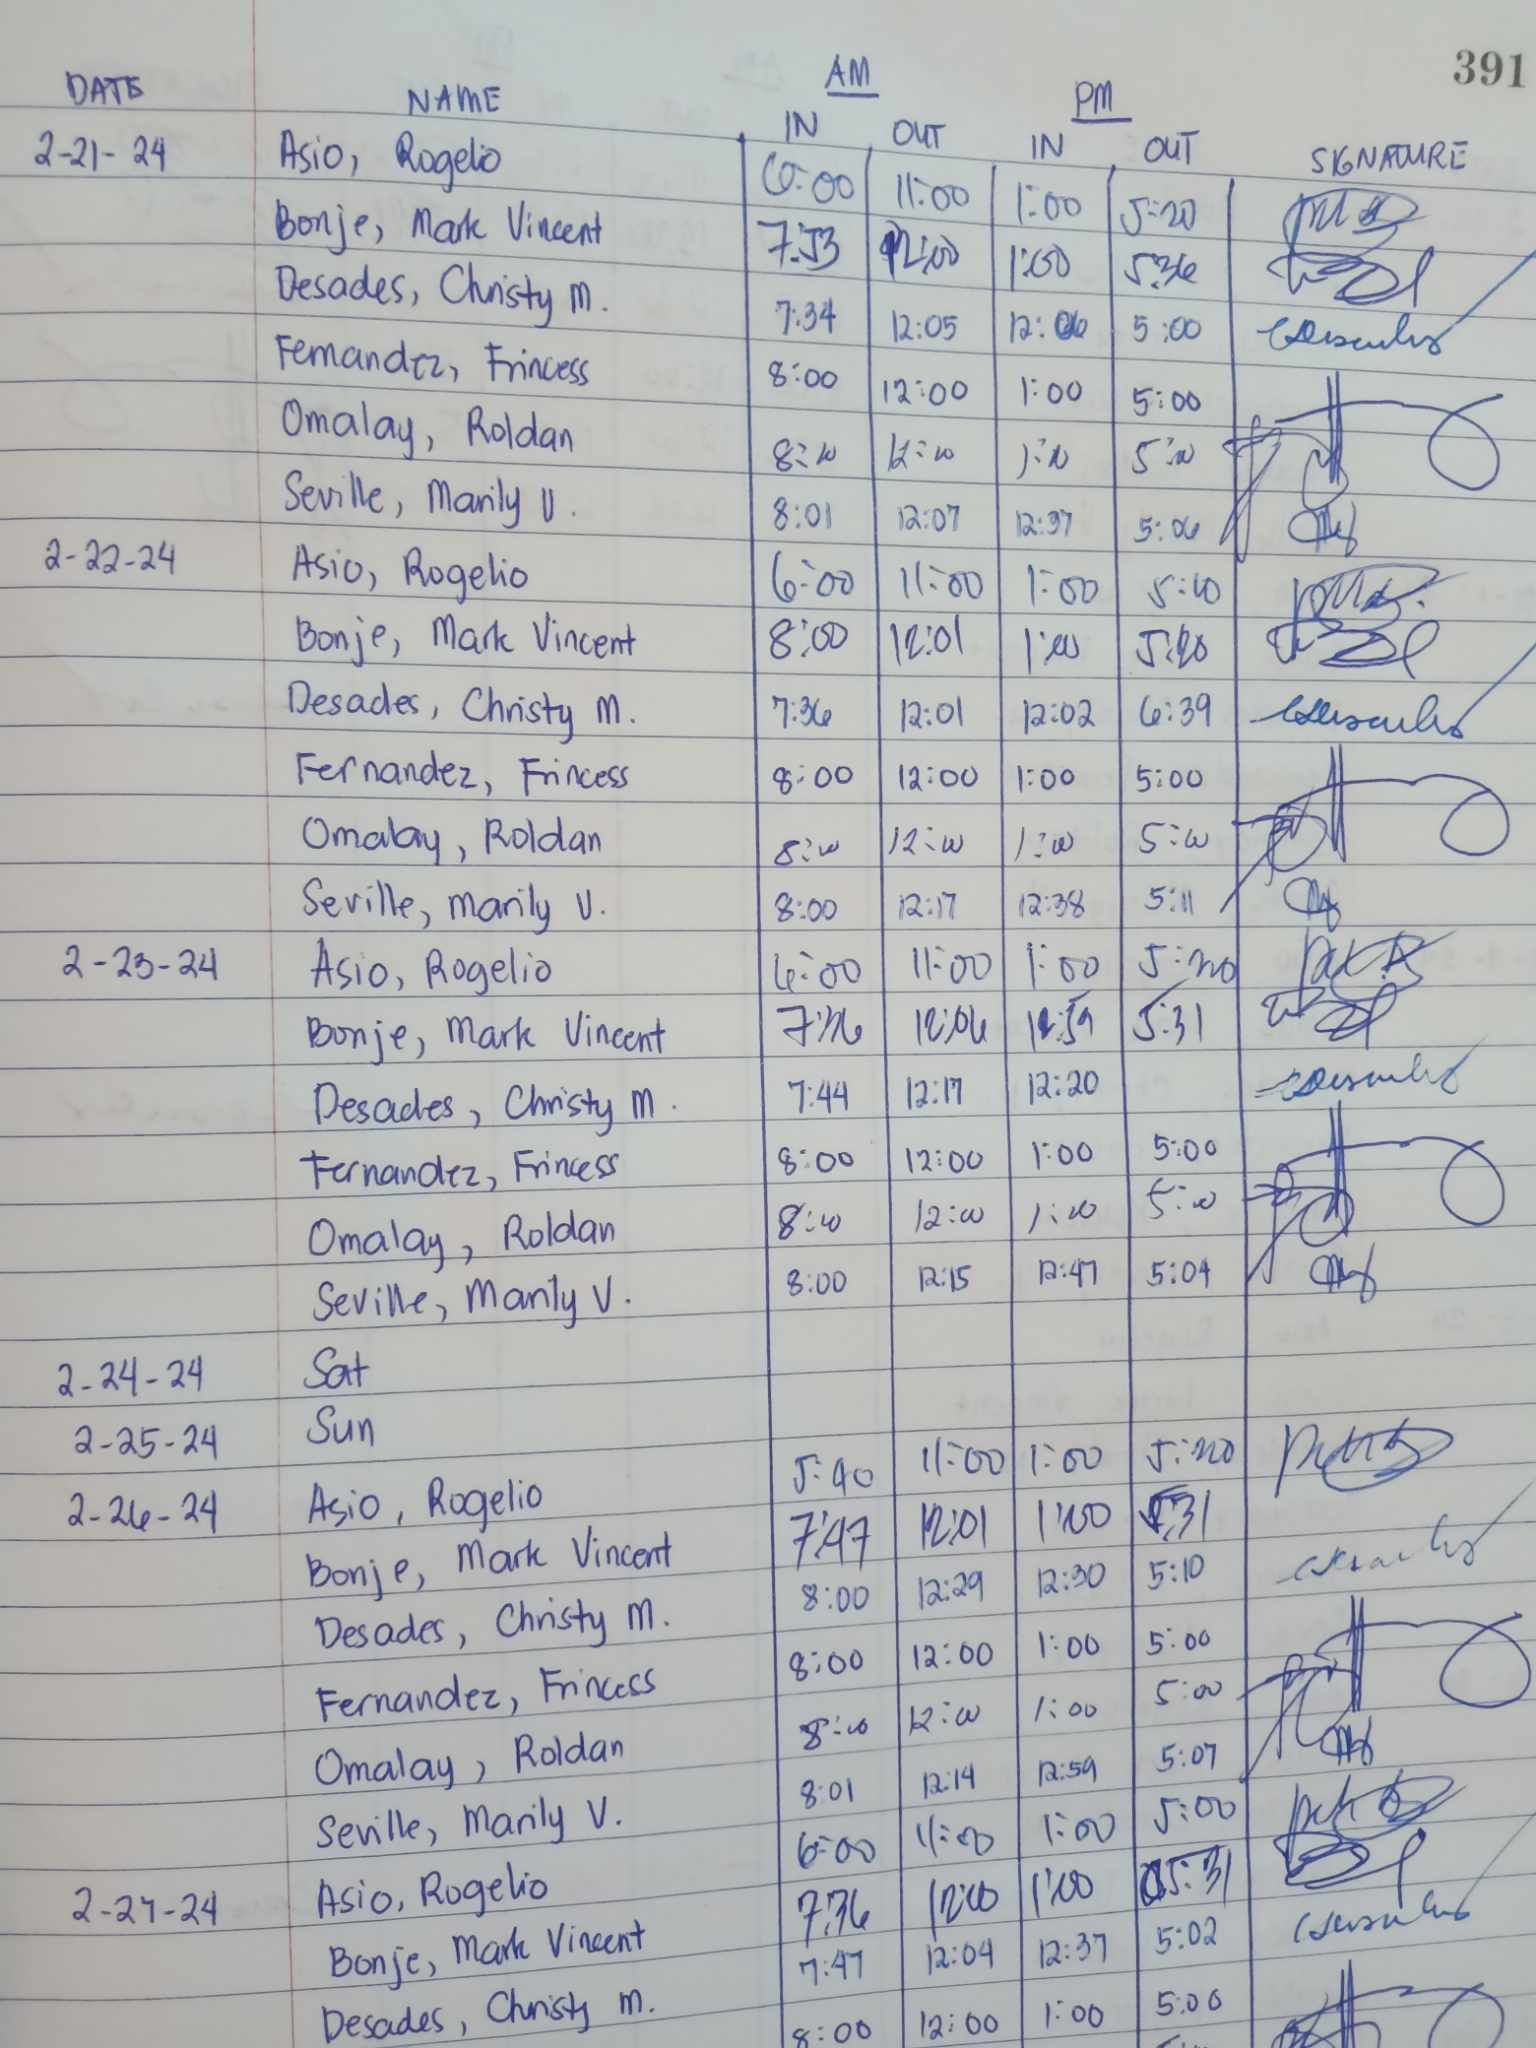 391
DATE NAME AM PM
IN OUT IN OUT SIGNATURE
2-21-24 Asio, Rogelio 6:00 11:00 1:00 5:20
Bonje, Mark Vincent 7:53 12:00 1:00 5:36
Desades, Christy M. 7:34 12:05 12:06 5:00
Fernandez, Frincess 8:00 12:00 1:00 5:00
Omalay, Roldan 8:00 12:00 1:00 5:00
Seville, Marily V. 8:01 12:07 12:37 5:06
2-22-24 Asio, Rogelio 6:00 11:00 1:00
Bonje, Mark Vincent 8:00 12:01 1:00
Desades, Christy M. 7:36 12:01 12:02 6:39
Fernandez, Frincess 8:00 12:00 1:00 5:00
Omalay, Roldan 8:00 12:00 1:00 5:00
Seville, Marily V. 8:00 12:17 12:38 5:11
2-23-24 Asio, Rogelio 6:00 11:00 1:00 5:20
Bonje, Mark Vincent 7:36 12:06 12:59 5:31
Desades, Christy M. 7:44 12:17 12:20
Fernandez, Frincess 8:00 12:00 1:00 5:00
Omalay, Roldan 8:00 12:00 1:00 5:00
Seville, Marily V. 8:00 12:15 12:47 5:04
2-24-24 Sat
2-25-24 Sun
2-26-24 Asio, Rogelio 5:40 11:00 1:00 5:20
Bonje, Mark Vincent 7:47 12:01 1:00 5:31
Desades, Christy M. 8:00 12:29 12:30 5:10
Fernandez, Frincess 8:00 12:00 1:00 5:00
Omalay, Roldan 8:00 12:00 1:00 5:00
Seville, Marily V. 8:01 12:14 12:59 5:07
2-27-24 Asio, Rogelio 6:00 11:00 1:00 5:00
Bonje, Mark Vincent 7:36 12:00 1:00 5:31
Desades, Christy M. 7:47 12:04 12:37 5:02
8:00 12:00 1:00 5:00